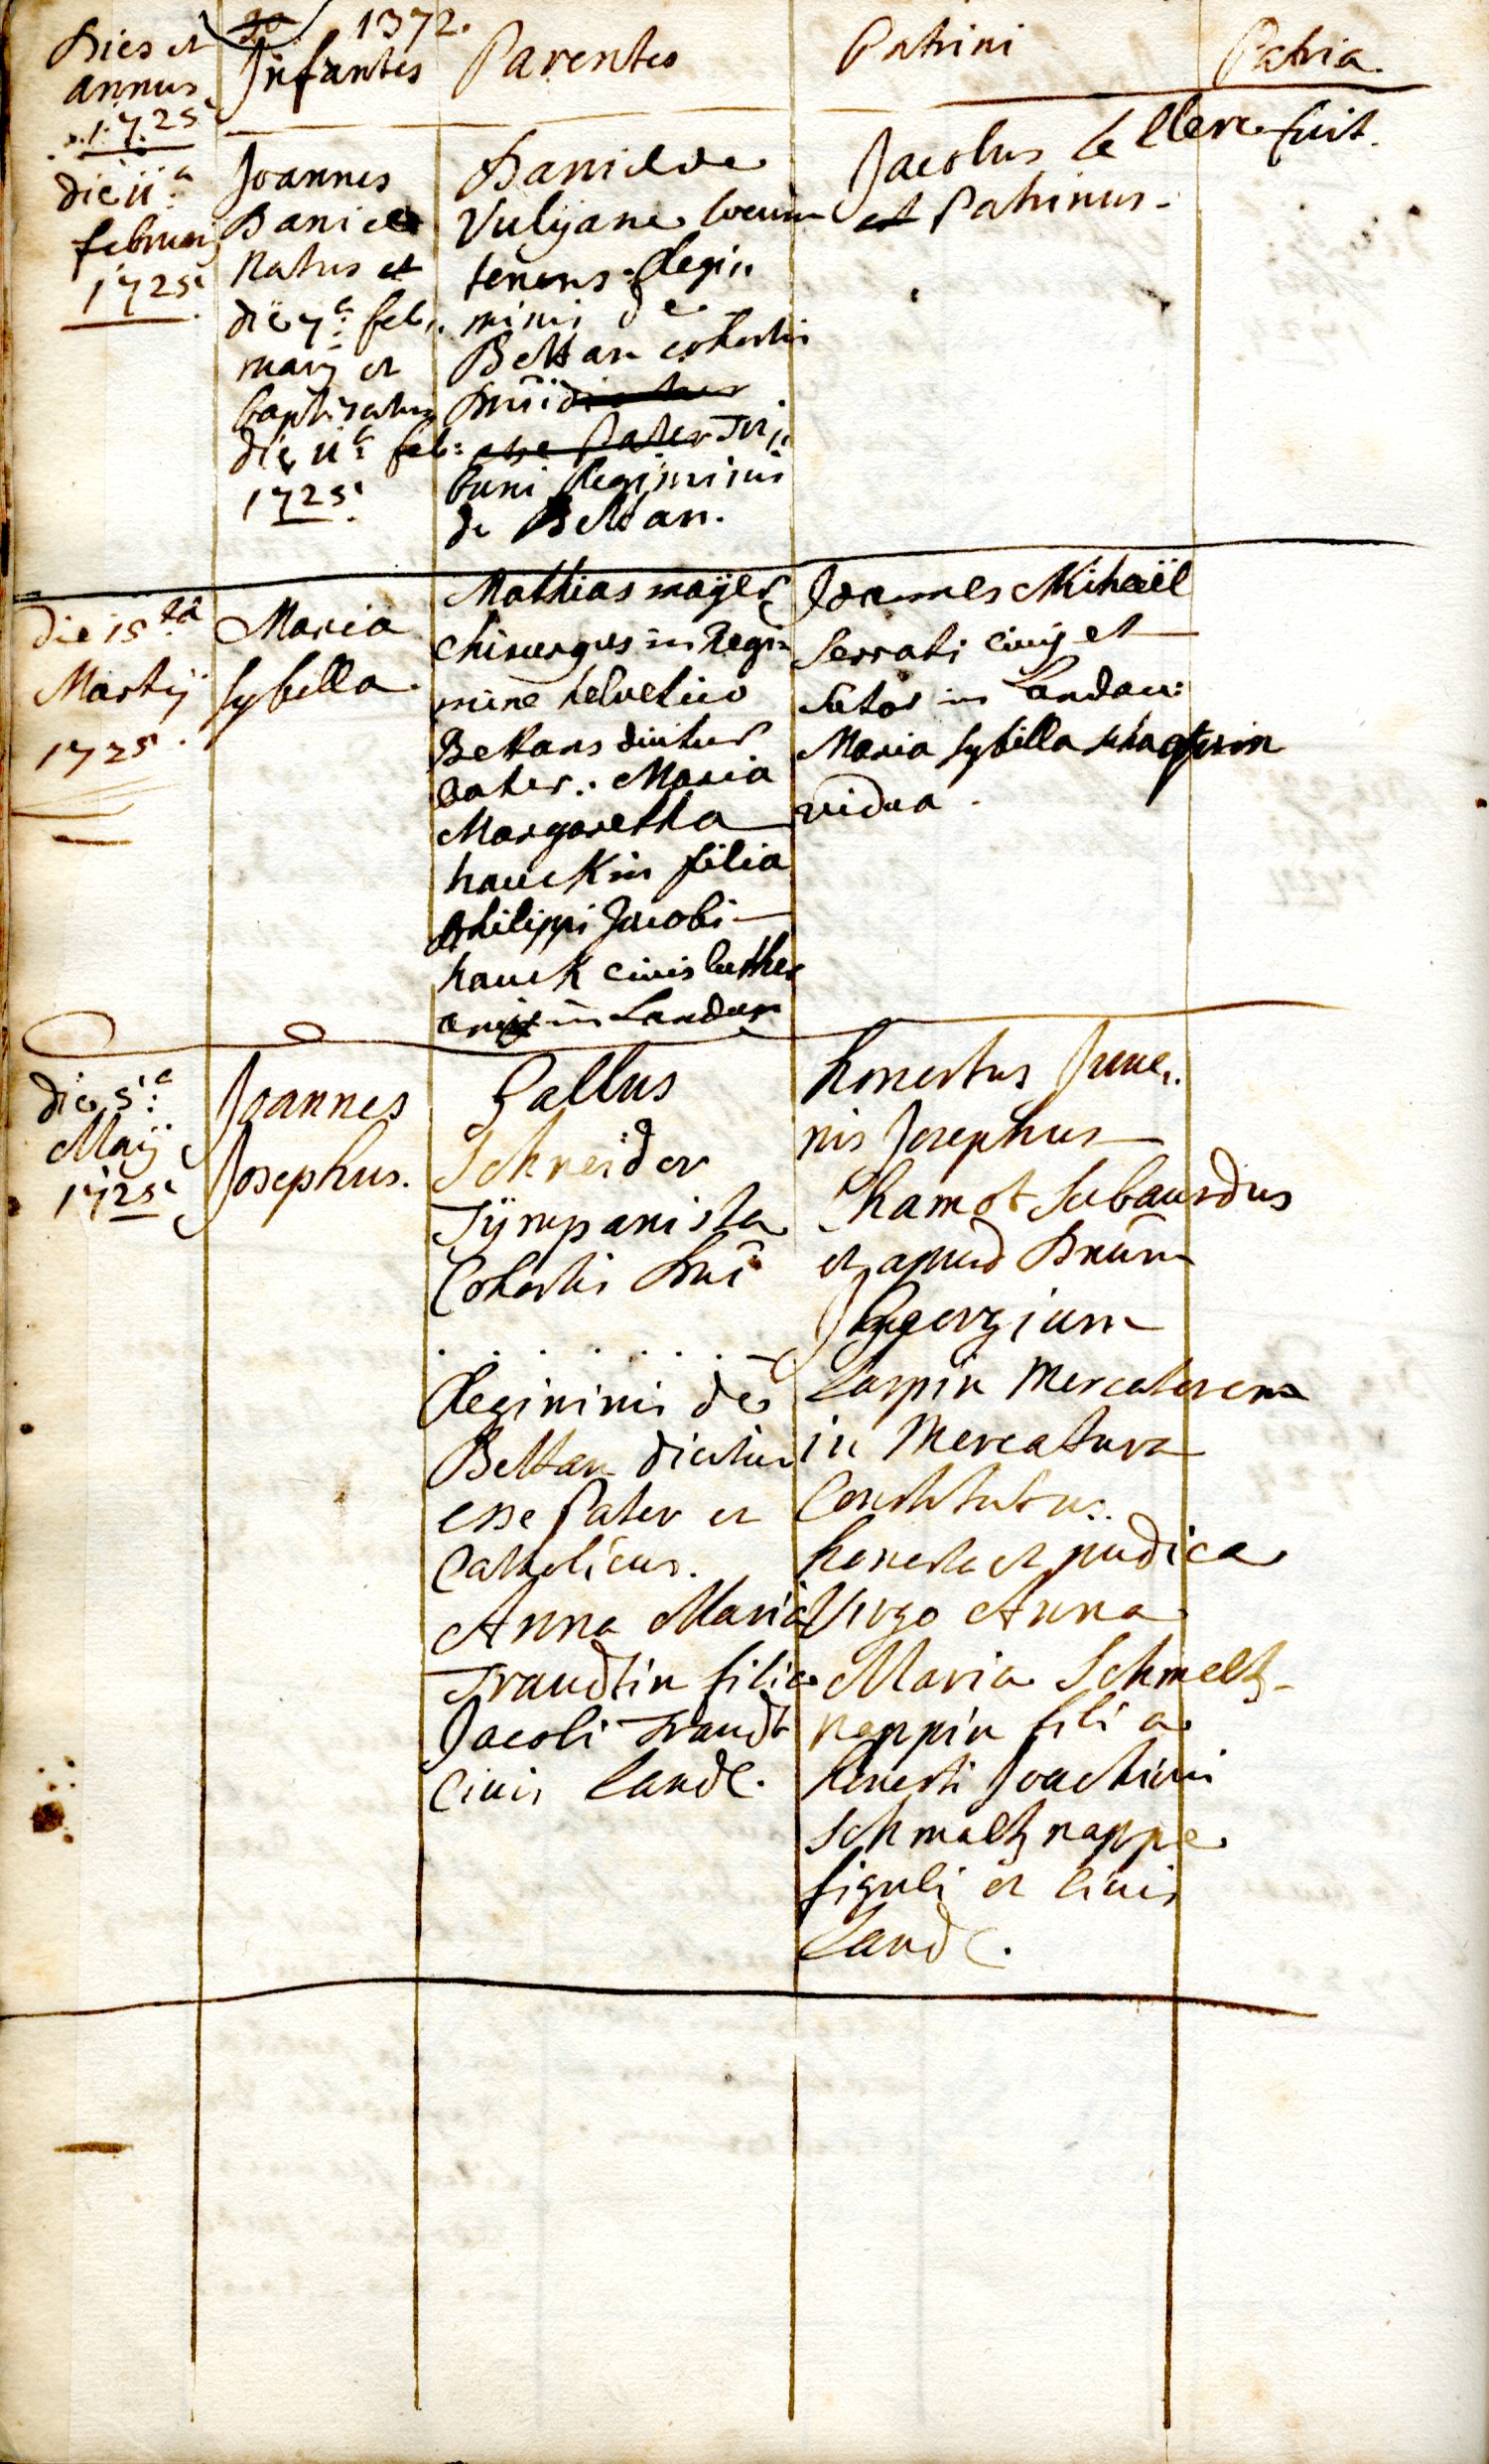 1372.
Dies et
annus
1725
Infantes
Parentes
Patrini
Patria.
die 11a
februarij
1725
Joannes
Daniel
Natus et
die 7a feb,,
ruarij et
baptizatus
die 11a feb:
1725
Daniel de
Vulijane locum
tenens Regi,,
minis de
Bettan cohortis
Dni dicitur
esse Pater Tri,,
buni Regiminis
de Bettan.
Jacobus le Clerc fuit
et Patrinus.
die 15ta
Martij
1725.
Maria
Sybilla
Mathias mayer
chirurgus in Regi
mine helvetico
Bettans dicitur
pater: Maria
Margaretha
hauckin filia
philippi Jacobi
hauck civis luther
ani in Landau
Joannes Michaël
Serrati civis et
Sutor in Landau
Maria Sybilla schaefferin
vidua.
die 5a
Maij
1725
Joannes
Josephus.
Gallus
Schneider
Tÿmpanista
Cohortis Dni
. . . . . . .
Regiminis de
Bettan dicitur
esse Pater et
Catholicus.
Anna Maria
Traudtin filia
Jacobi Traudt
Civis Land.
honestus Juve,,
nis Josephus
Chamot Sabaudus
et apud Dnum
Georgium
Carpin Mercatorem
in Mercatura
Constitutus.
honesta et pudica
Virgo Anna
Maria Schmeltz-
nappin filia
honesti Joachimi
Schmaltznappe
figuli et Civis
Land.